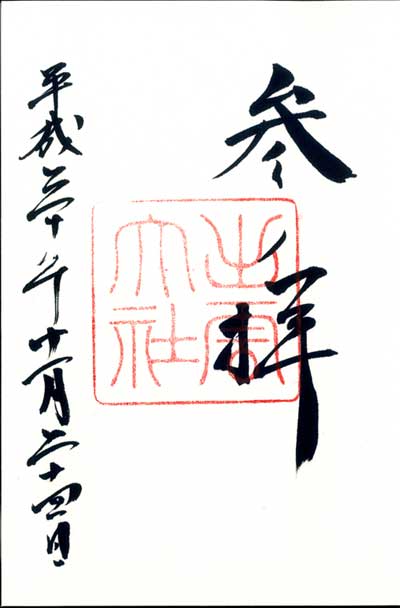 参拝
出雲
大社
平成二十八年十一月二十四日